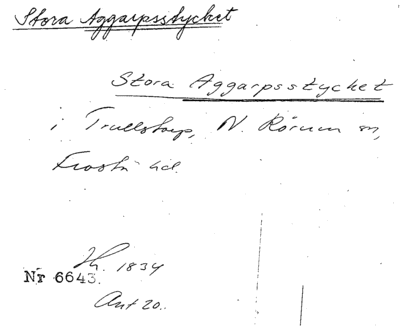 Stora Aggarpsstycket
Stora Aggarpsstycket
i Trullstorp, N. Rörum sn,
Frosta hd.
Lh. 1834
Nr 6643.
Akt 20.